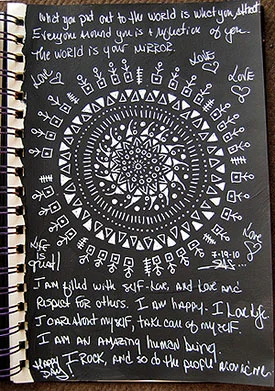 What you put out to the world is what you attract
Everyone around you is a reflection of you.
the world is your mirror.
Love
Love
LOVE
Love
Life
is
great!
7-19-10
I am filled with self-love, and love and
Respect for others. I am happy. I Love life
I care about myself, take care of myself.
I am an amazing human being
Happy
Day
I ROCK, and so do the people